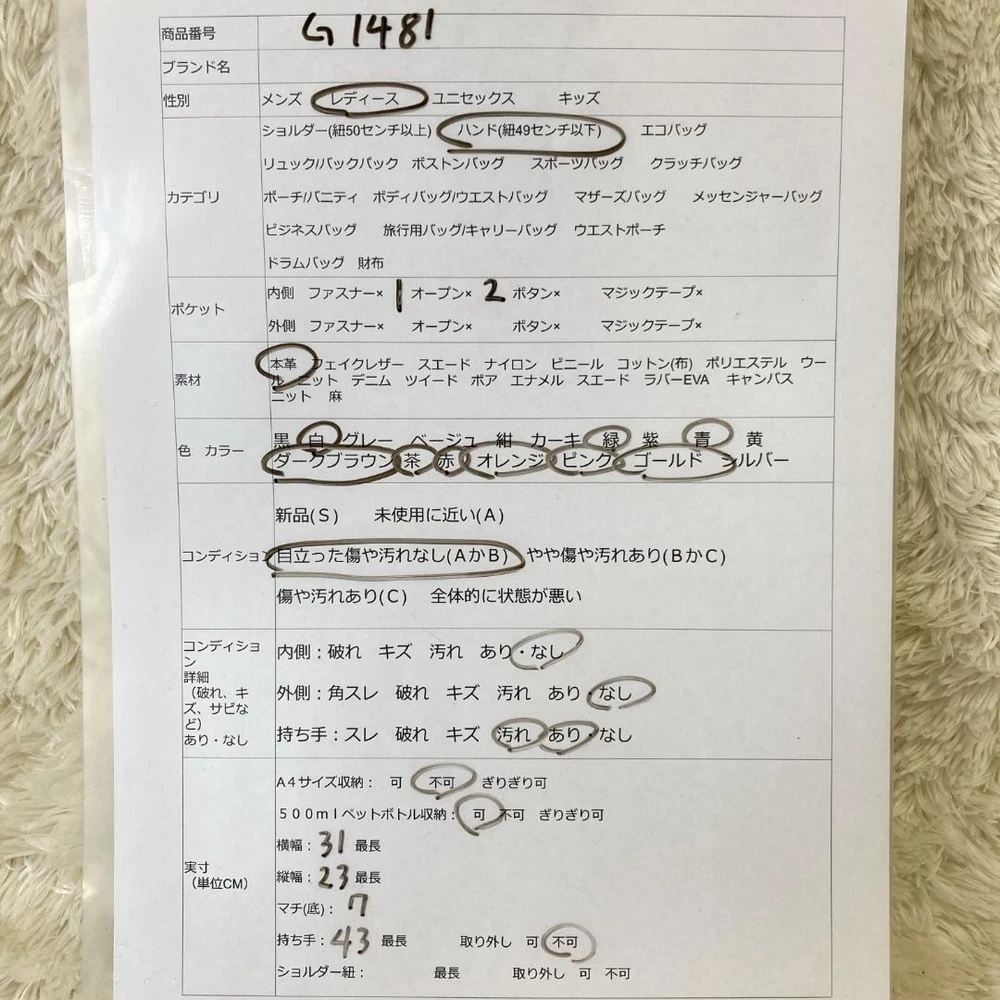 商品番号 G1481
ブランド名
性別 メンズ レディース ユニセックス キッズ
ショルダー(紐50センチ以上) ハンド(紐49センチ以下) エコバッグ
リュック/バックパック ボストンバッグ スポーツバッグ クラッチバッグ
カテゴリ ポーチ/バニティ ボディバッグ/ウエストバッグ マザーズバッグ メッセンジャーバッグ
ビジネスバッグ 旅行用バッグ/キャリーバッグ ウエストポーチ
ドラムバッグ 財布
ポケット 内側 ファスナー× 1 オープン× 2 ボタン× マジックテープ×
外側 ファスナー× オープン× ボタン× マジックテープ×
素材 本革 フェイクレザー スエード ナイロン ビニール コットン(布) ポリエステル ウー
ル ニット デニム ツイード ボア エナメル スエード ラバーEVA キャンバス
ニット 麻
色 カラー 黒 白 グレー ベージュ 紺 カーキ 緑 紫 青 黄
ダークブラウン 茶 赤 オレンジ ピンク ゴールド シルバー
新品(S) 未使用に近い(A)
コンディション 目立った傷や汚れなし(AかB) やや傷や汚れあり(BかC)
傷や汚れあり(C) 全体的に状態が悪い
コンディショ
ン
詳細
(破れ、キ
ズ、サビな
ど)
あり・なし
内側：破れ キズ 汚れ あり・なし
外側：角スレ 破れ キズ 汚れ あり・なし
持ち手：スレ 破れ キズ 汚れ あり・なし
A4サイズ収納： 可 不可 ぎりぎり可
500mlペットボトル収納： 可 不可 ぎりぎり可
横幅：31 最長
実寸
(単位CM)
縦幅：23 最長
マチ(底)：7
持ち手：43 最長 取り外し 可 不可
ショルダー紐： 最長 取り外し 可 不可